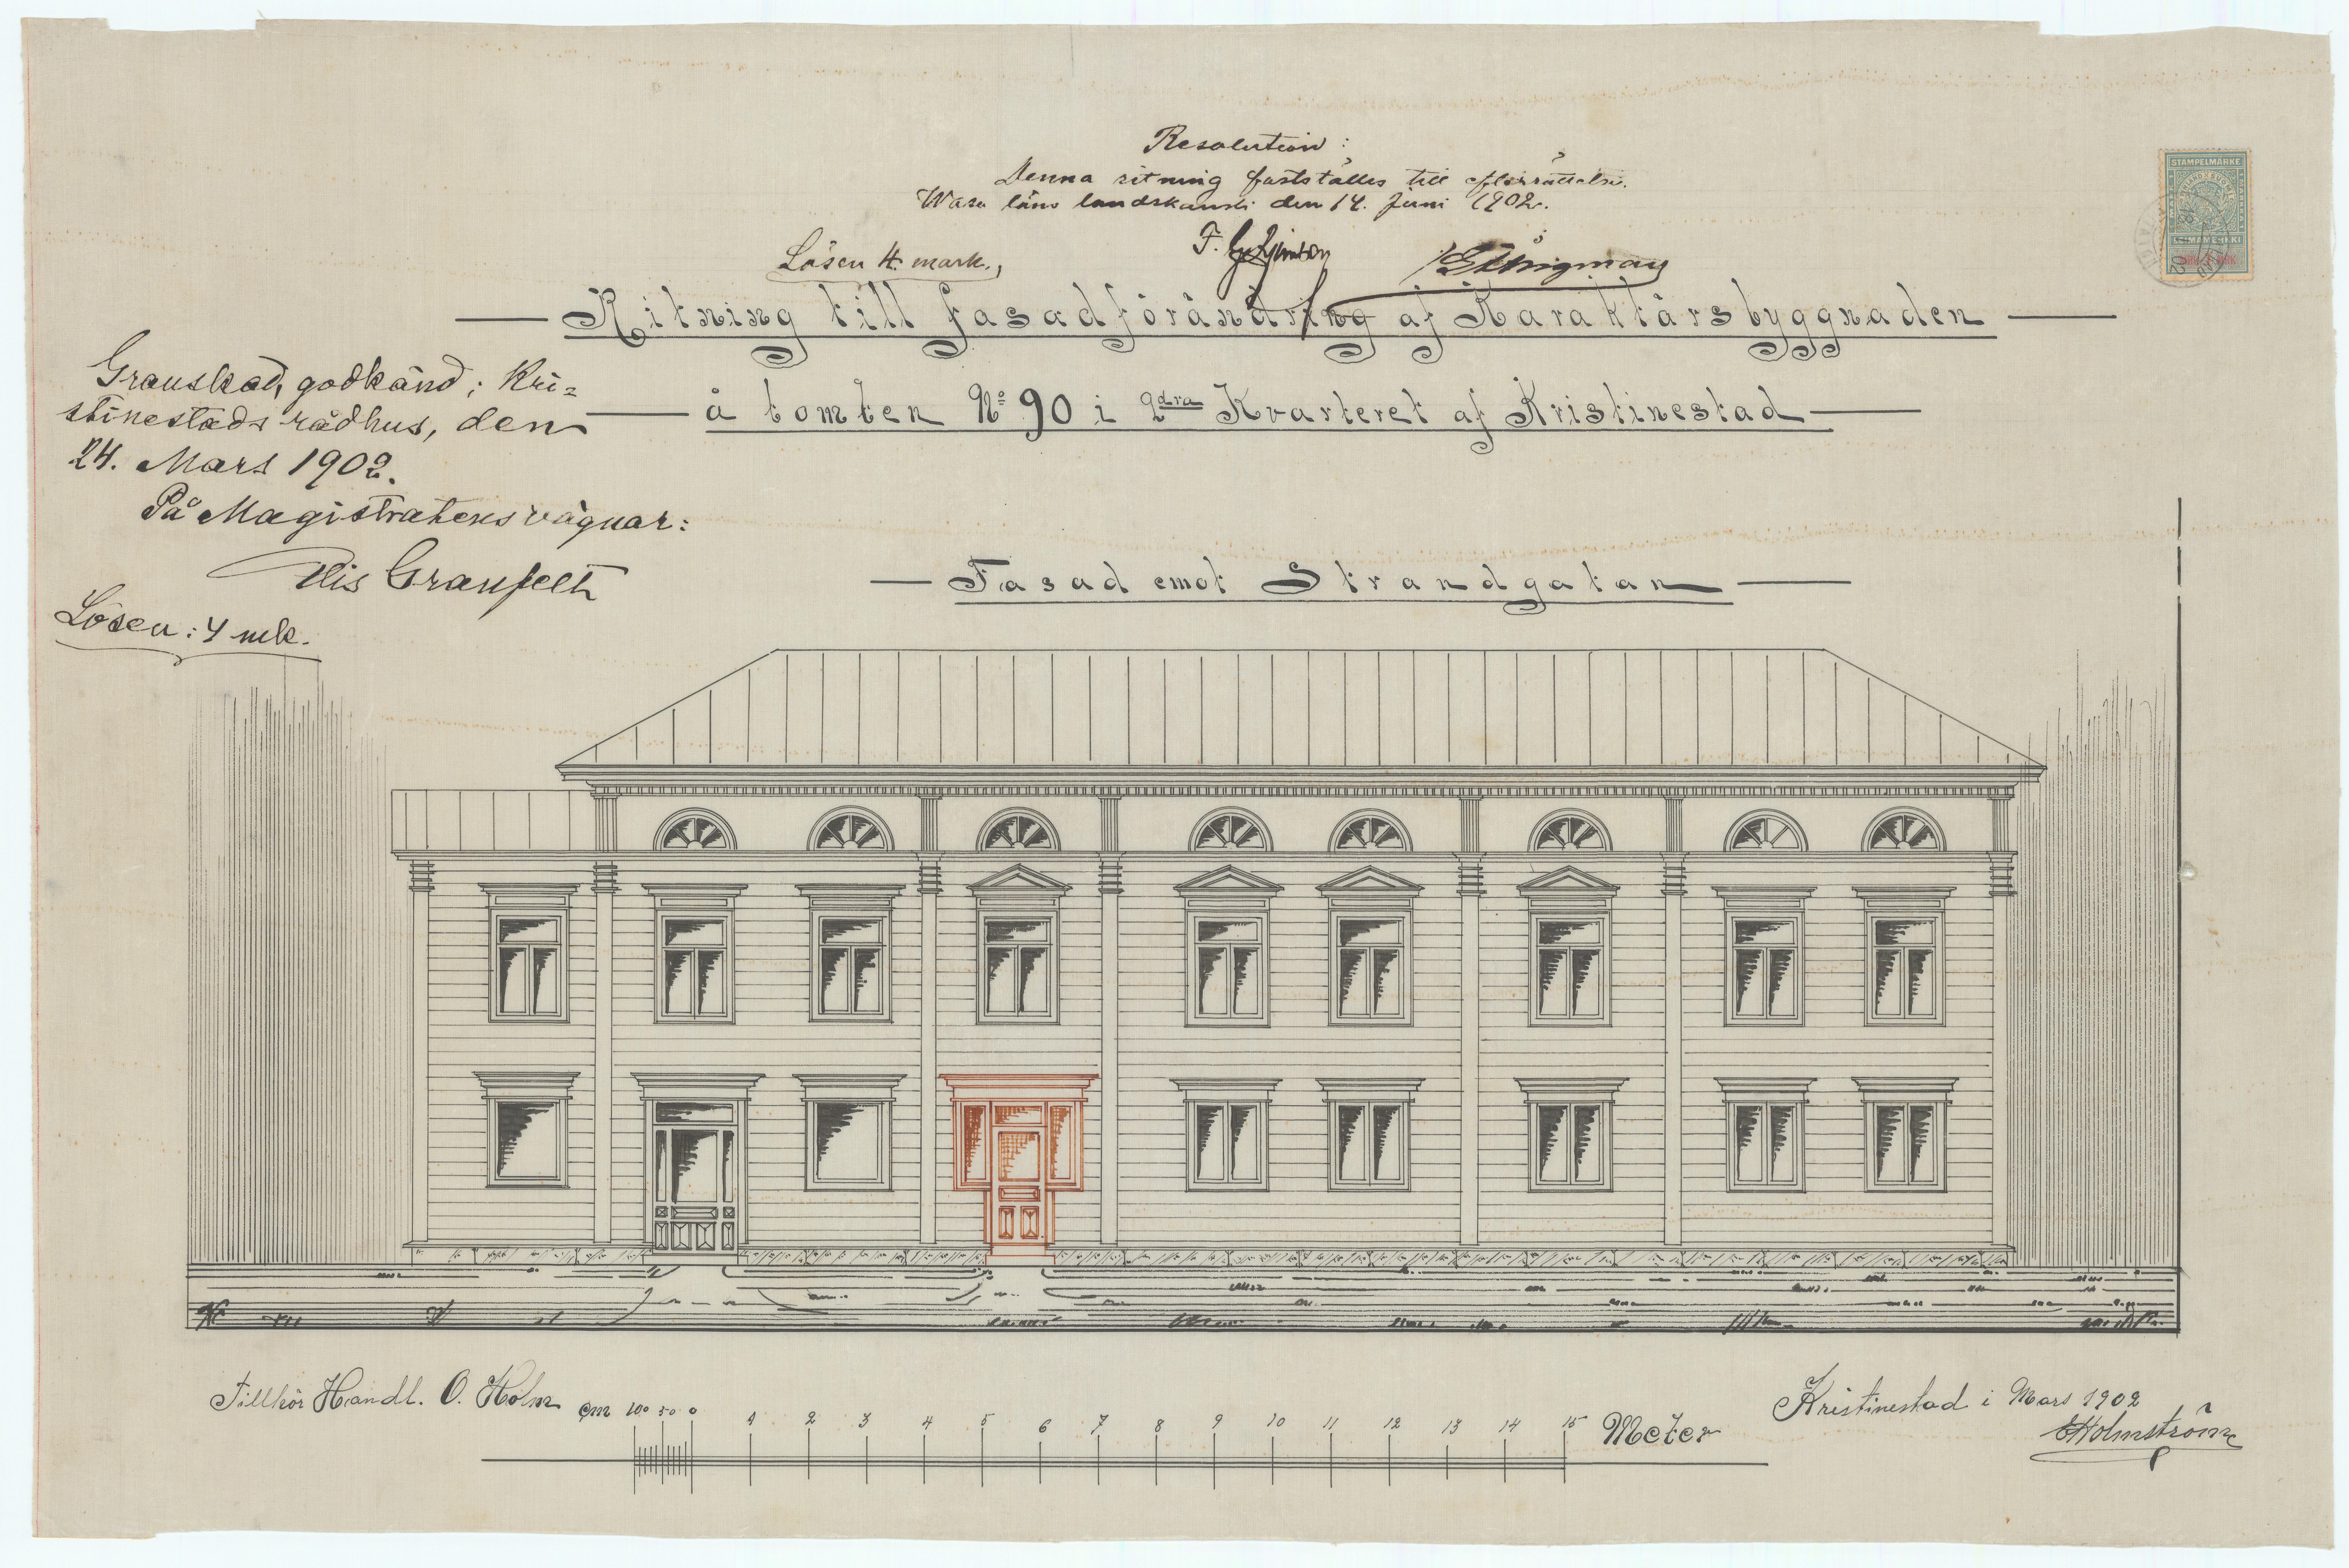 Resolution:
Denna ritning fastställes till efterrättelse.
Wasa läns landskansli den 14. Juni 1902.
Lösen 4. mark.
STAMPELMÄRKE
LEIMAMERKKI
Ritning till fasadförändring af Karaktärsbyggnaden
å tomten No 90 i 2dra Kvarteret af Kristinestad
Granskad, godkänd; Kri=
stinestads rådhus, den
24. Mars 1902.
På Magistratens vägnar:
Nis Granfelt
Lösen: 4 mk.
Fasad emot Strandgatan
Tillhör Handl. O. Holm
cm 100 50 0 1 2 3 4 5 6 7 8 9 10 11 12 13 14 15 Meter
Kristinestad i Mars 1902
EHolmström